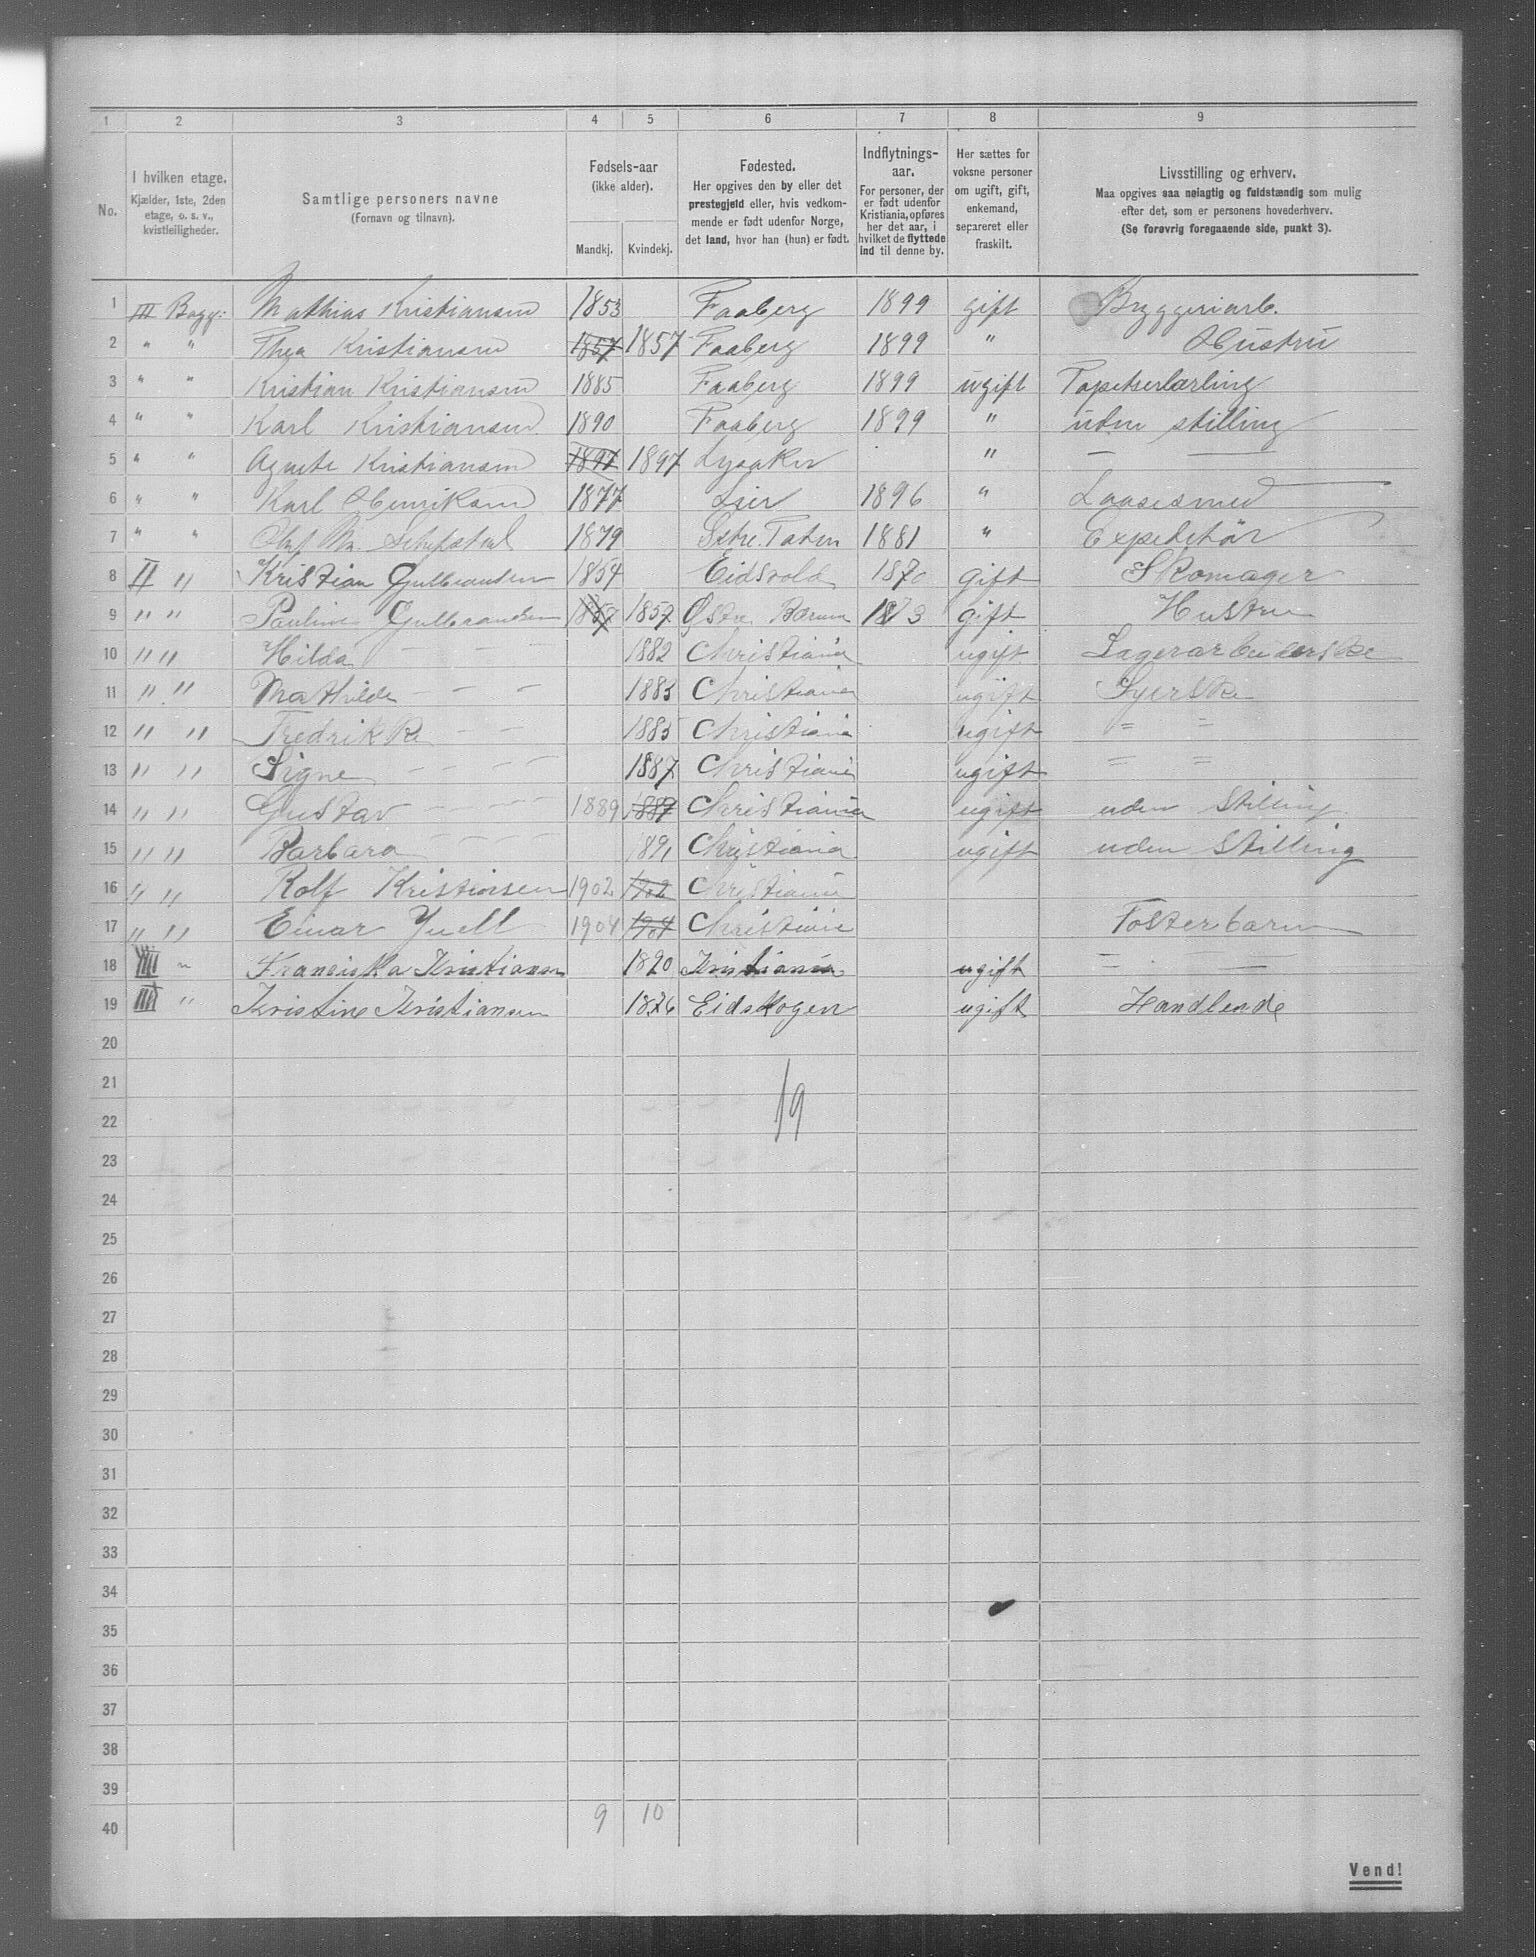 1 2 3 4 5 6 7 8 9
No.
I hvilken etage.
Kjælder, 1ste, 2den
etage, o. s. v.,
kvistleiligheder.
Samtlige personers navne
(Fornavn og tilnavn).
Fødsels-aar
(ikke alder).
Mandkj. Kvindekj.
Fødested.
Her opgives den by eller det
prestegjeld eller, hvis vedkom-
mende er født udenfor Norge,
det land, hvor han (hun) er født.
Indflytnings-
aar.
For personer, der
er født udenfor
Kristiania, opføres
her det aar, i
hvilket de flyttede
ind til denne by.
Her sættes for
voksne personer
om ugift, gift,
enkemand,
separeret eller
fraskilt.
Livsstilling og erhverv.
Maa opgives saa nøiagtig og fuldstændig som mulig
efter det, som er personens hovederhverv.
(Se forøvrig foregaaende side, punkt 3).
1 III Bagg: Mathias Kristiansen 1853 Faaberg 1899 gift Bryggeriarb.
2 " " Thea Kristiansen 1857 1857 Faaberg 1899 " Hustru
3 " " Kristian Kristiansen 1885 Faaberg 1899 ugift Tapetserlærling
4 " " Karl Kristiansen 1890 Faaberg 1899 " uden stilling
5 " " Agnete Kristiansen 1897 1897 Lysaker " —
6 " " Karl Henriksen 1877 Lier 1896 " Laasesmed
7 " " Olaf M. 1879 Østre Toten 1881 " Expeditør
8 II " Kristian Gulbrandsen 1854 Eidsvold 1870 gift Skomager
9 " " Pauline Gulbrandsen 1857 1857 Østre Bærum 1873 gift Hustru
10 " " Hilda — — — 1882 Christiania ugift Lagerarbeiderske
11 " " Mathilde — — — 1883 Christiania ugift Syerske
12 " " Fredrikke — — 1885 Christiania ugift = =
13 " " Signe — — — — 1887 Christiania ugift = =
14 " " Gustav — — — — 1889 1889 Christiania ugift uden Stilling
15 " " Barbara — — — — 1891 Christiania ugift uden Stilling
16 " " Rolf Kristiansen 1902 1902 Christiania
17 " " Einar Juell 1904 1904 Christiania Fosterbarn
18 IIII " Franciska Kristiansen 1890 Kristiania ugift = —
19 IIII " Kristine Kristiansen 1876 Eidskogen ugift Handlende
20
21
19
22
23
24
25
26
27
28
29
30
31
32
33
34
35
36
37
38
39
40 9 10
Vend!